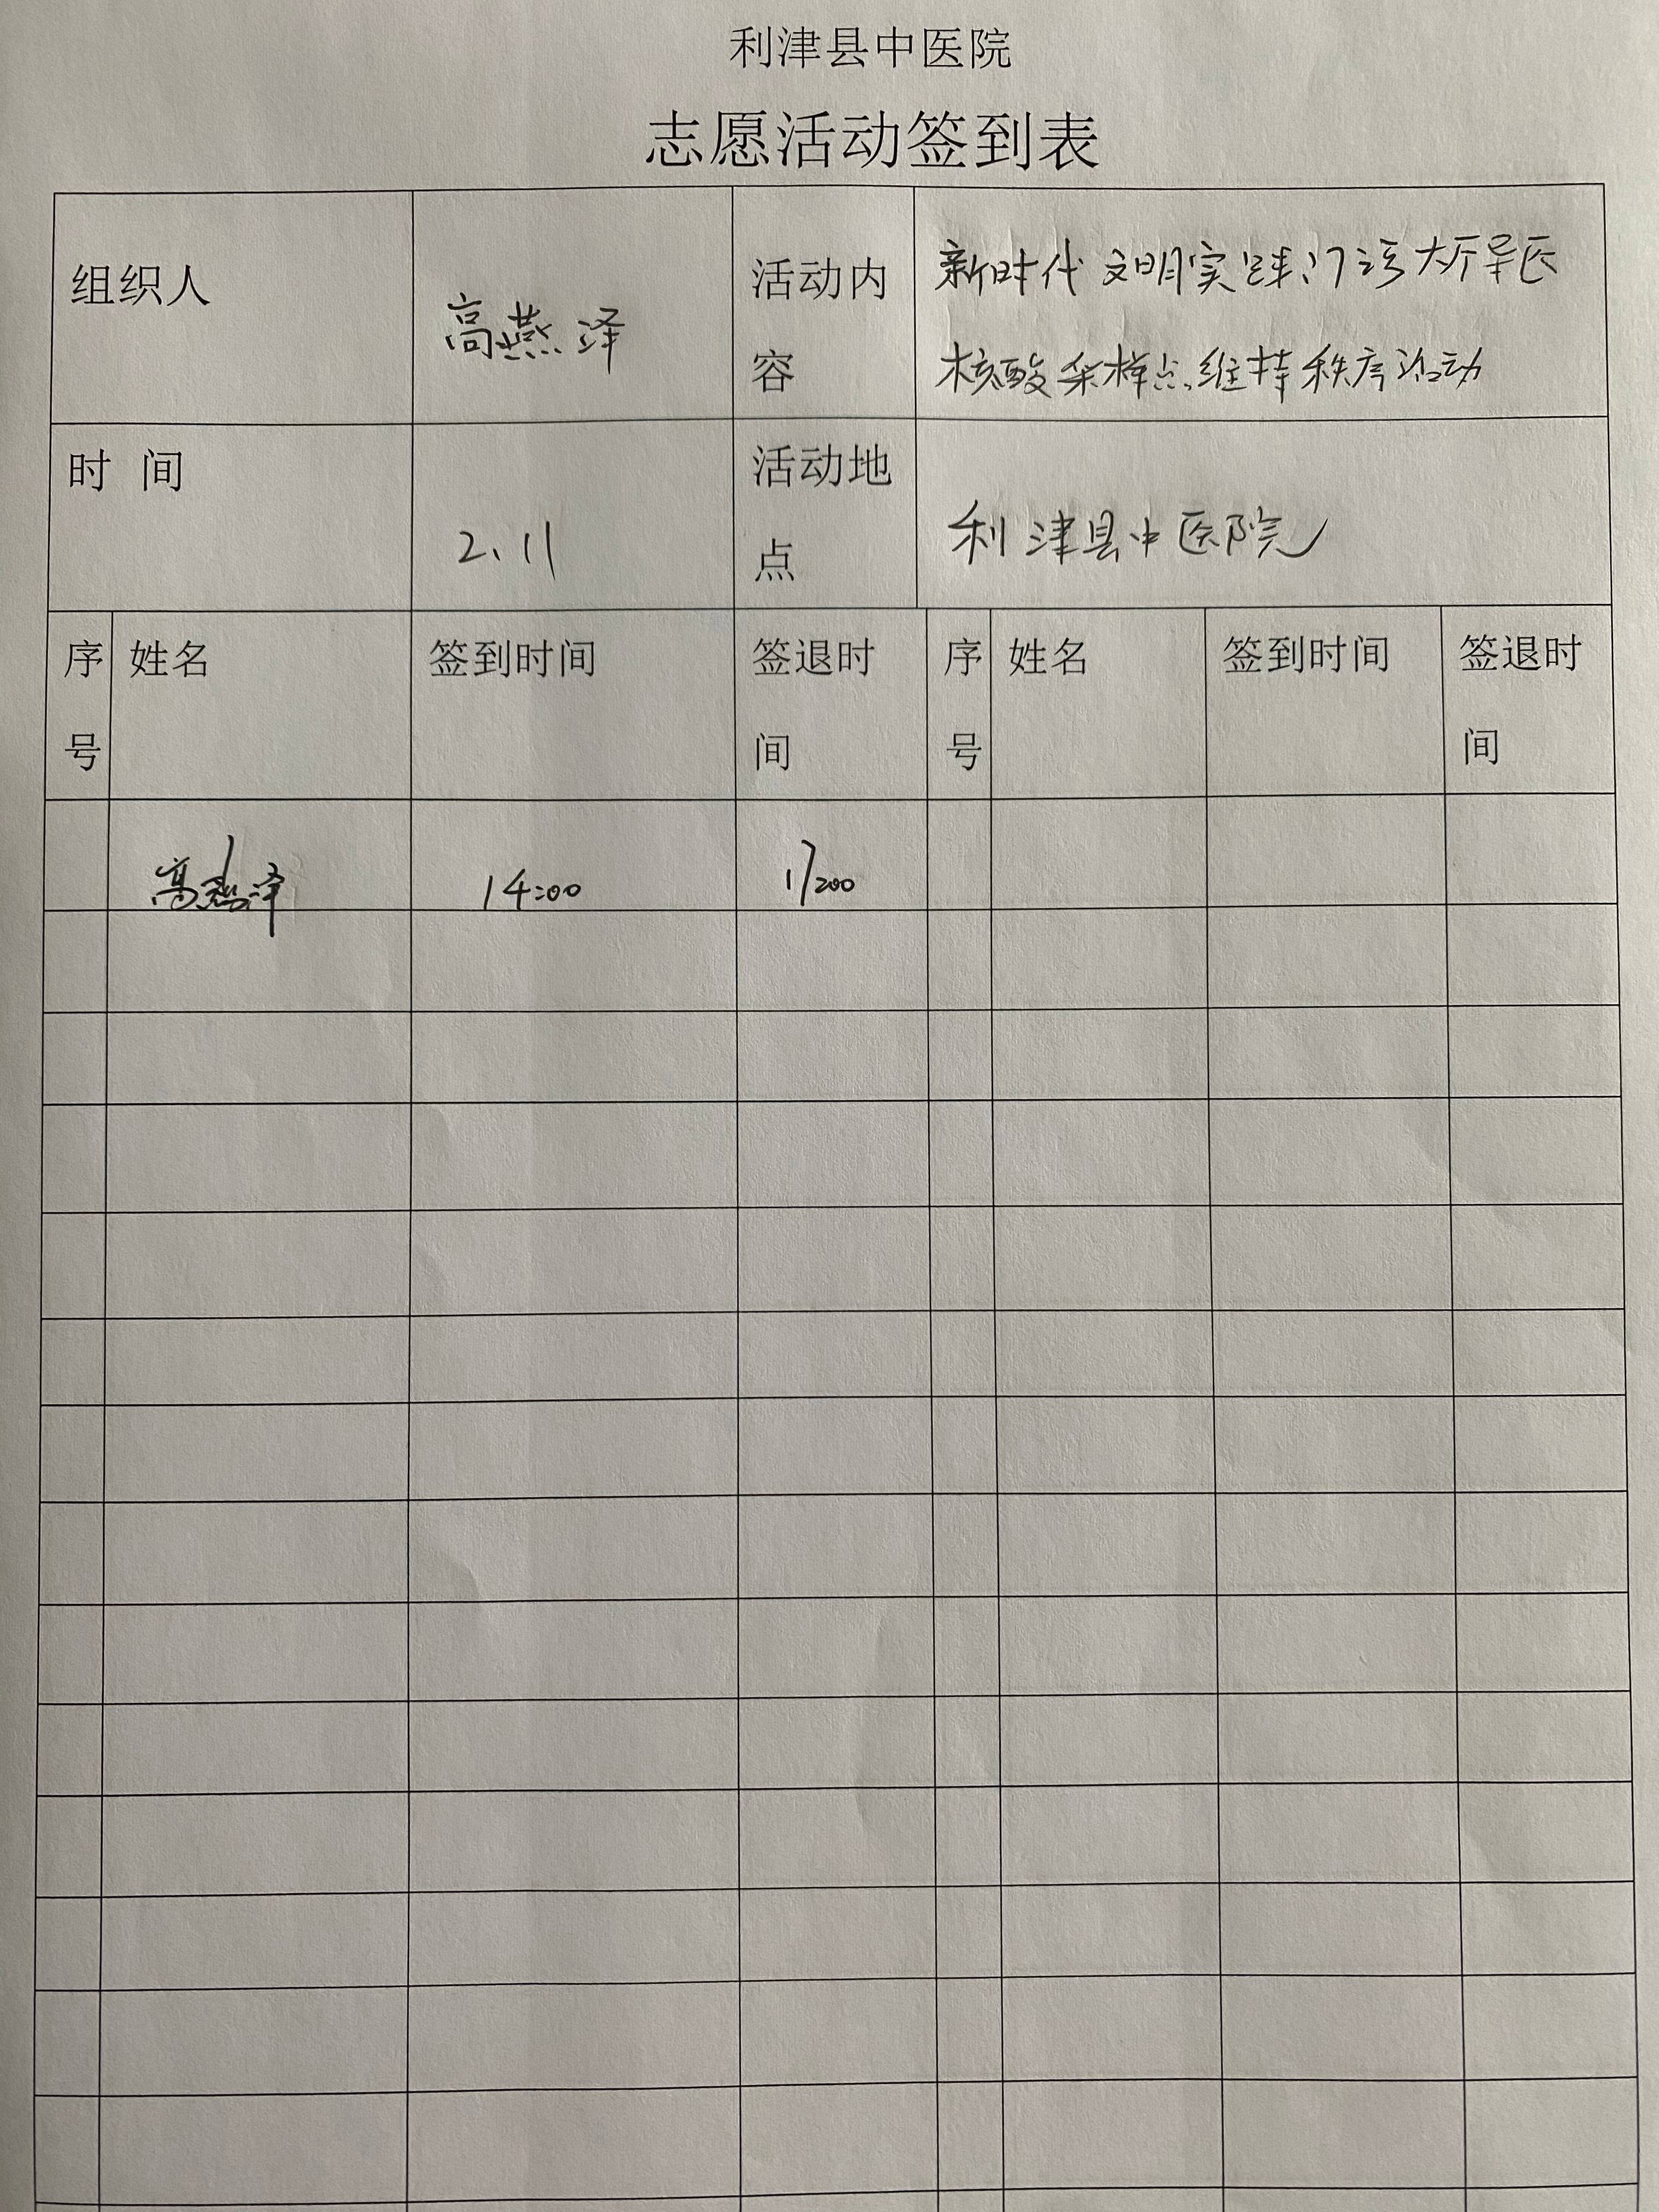 利津县中医院
志愿活动签到表
组织人
高燕泽
活动内
容
新时代文明实践门诊大厅导医
核酸采样点维持秩序活动
时 间
2.11
活动地
点
利津县中医院
序
号
姓名
签到时间
签退时
间
序
号
姓名
签到时间
签退时
间
高燕泽
14:00
17:00